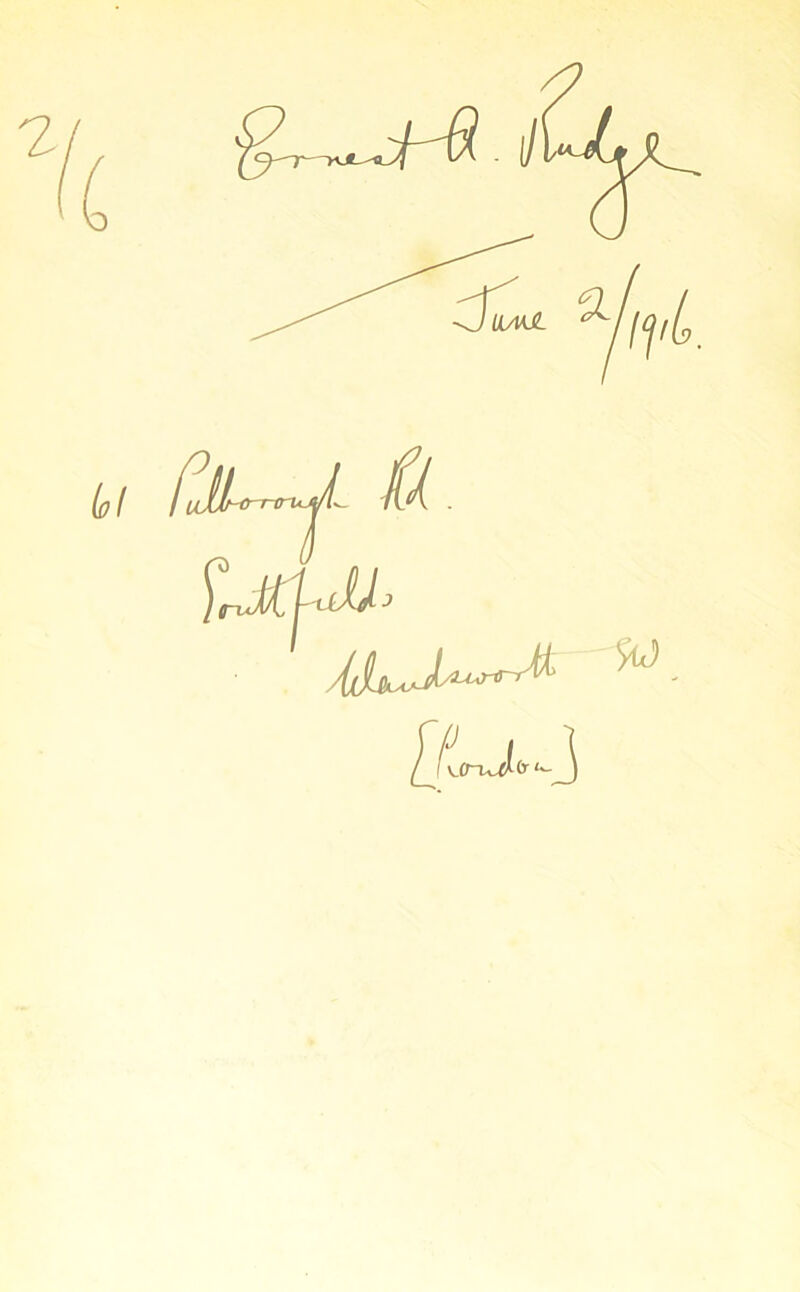 2/6 Ernest A. Rudge
June 2/1916.
61 Pulborough Rd.
Southfields
Wandsworth SW.
[London]